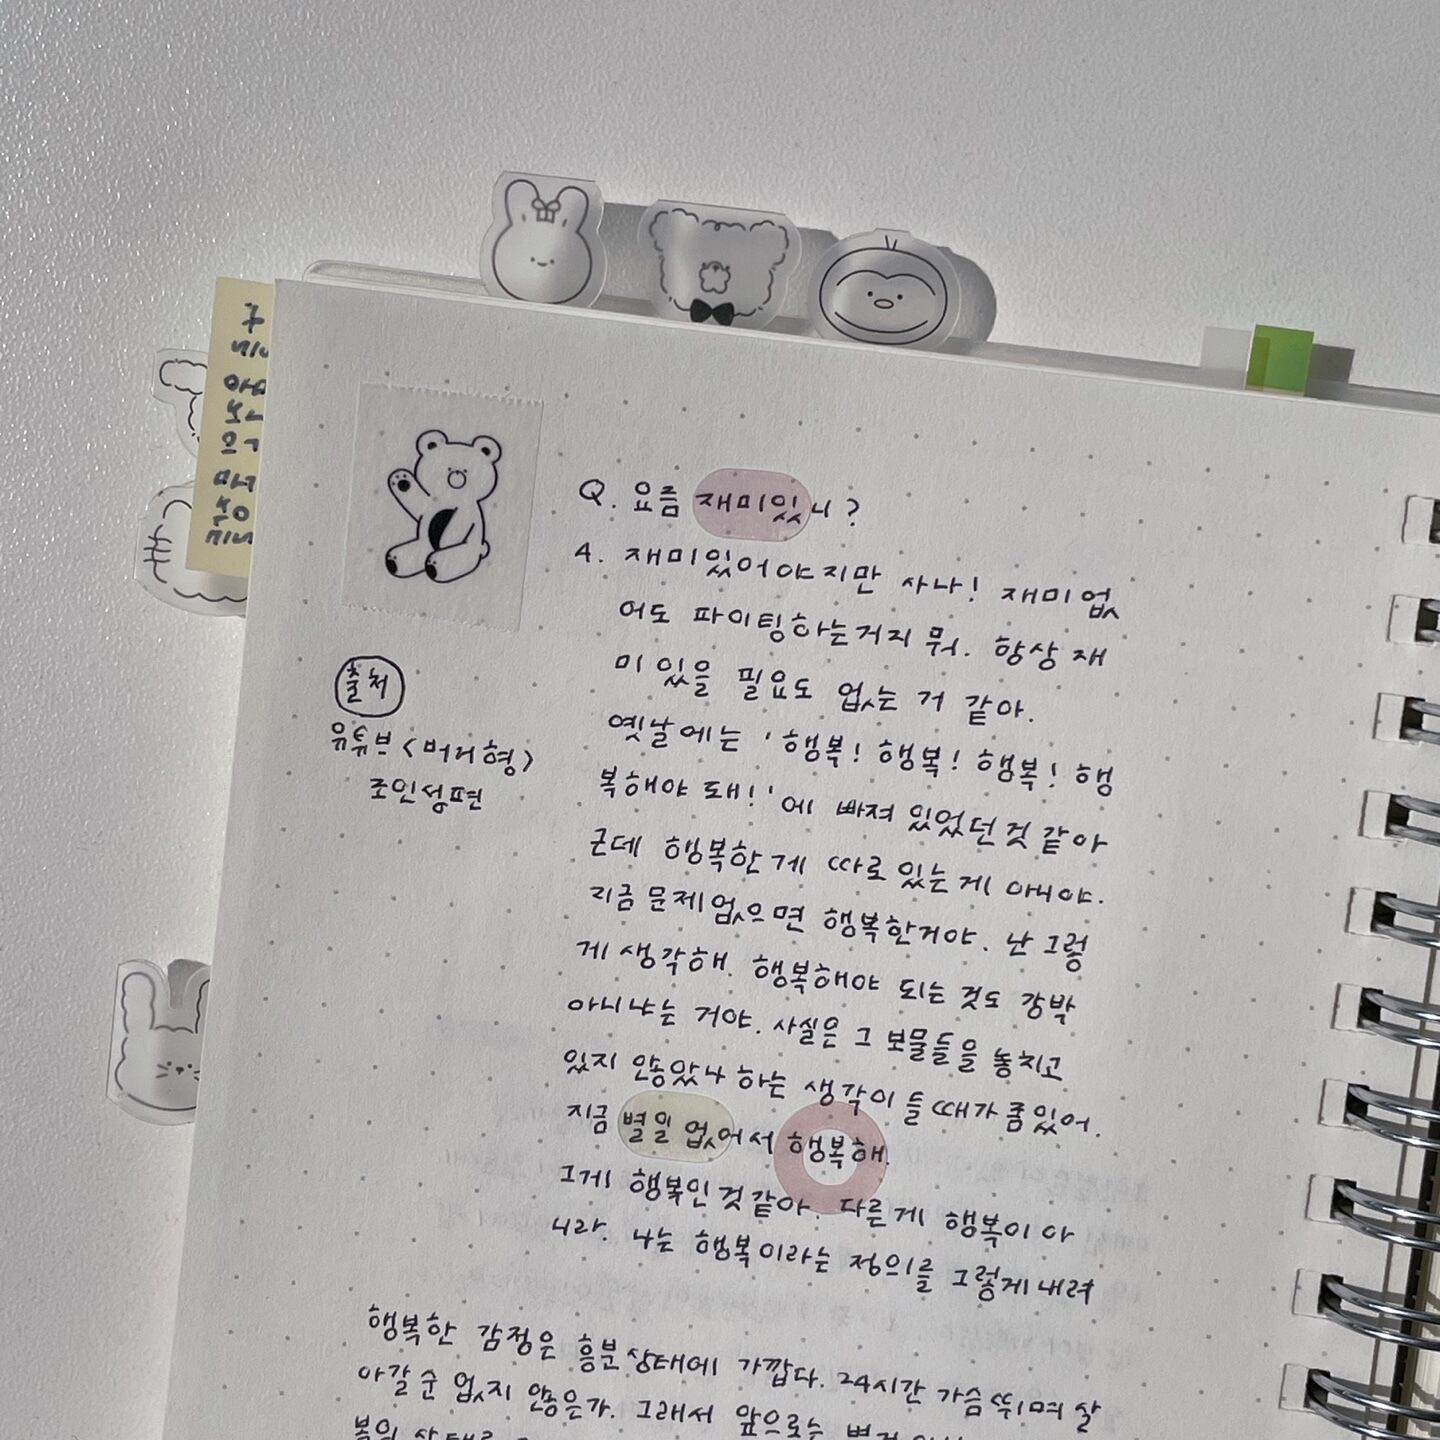 Q. 요즘 재미있니?
A. 재미있어야지만 사나! 재미없
어도 파이팅하는거지 뭐. 항상 재
미있을 필요도 없는 거 같아.
옛날에는 '행복! 행복! 행복! 행
복해야 돼!'에 빠져 있었던것 같아
근데 행복한게 따로 있는게 아니야.
지금 문제없으면 행복한거야. 난 그렇
게 생각해. 행복해야 되는 것도 강박
아니냐는 거야. 사실은 그 보물들을 놓치고
있지 않았나 하는 생각이 들 때가 좀있어.
지금 별일 없어서 행복해.
그게 행복인것같아. 다른게 행복이 아
니라. 나는 행복이라는 정의를 그렇게 내려
출처
유튜브 <버거형>
조인성편
행복한 감정은 흥분상태에 가깝다. 24시간 가슴 뛰며 살
아갈 순 없지 않은가. 그래서 앞으로는